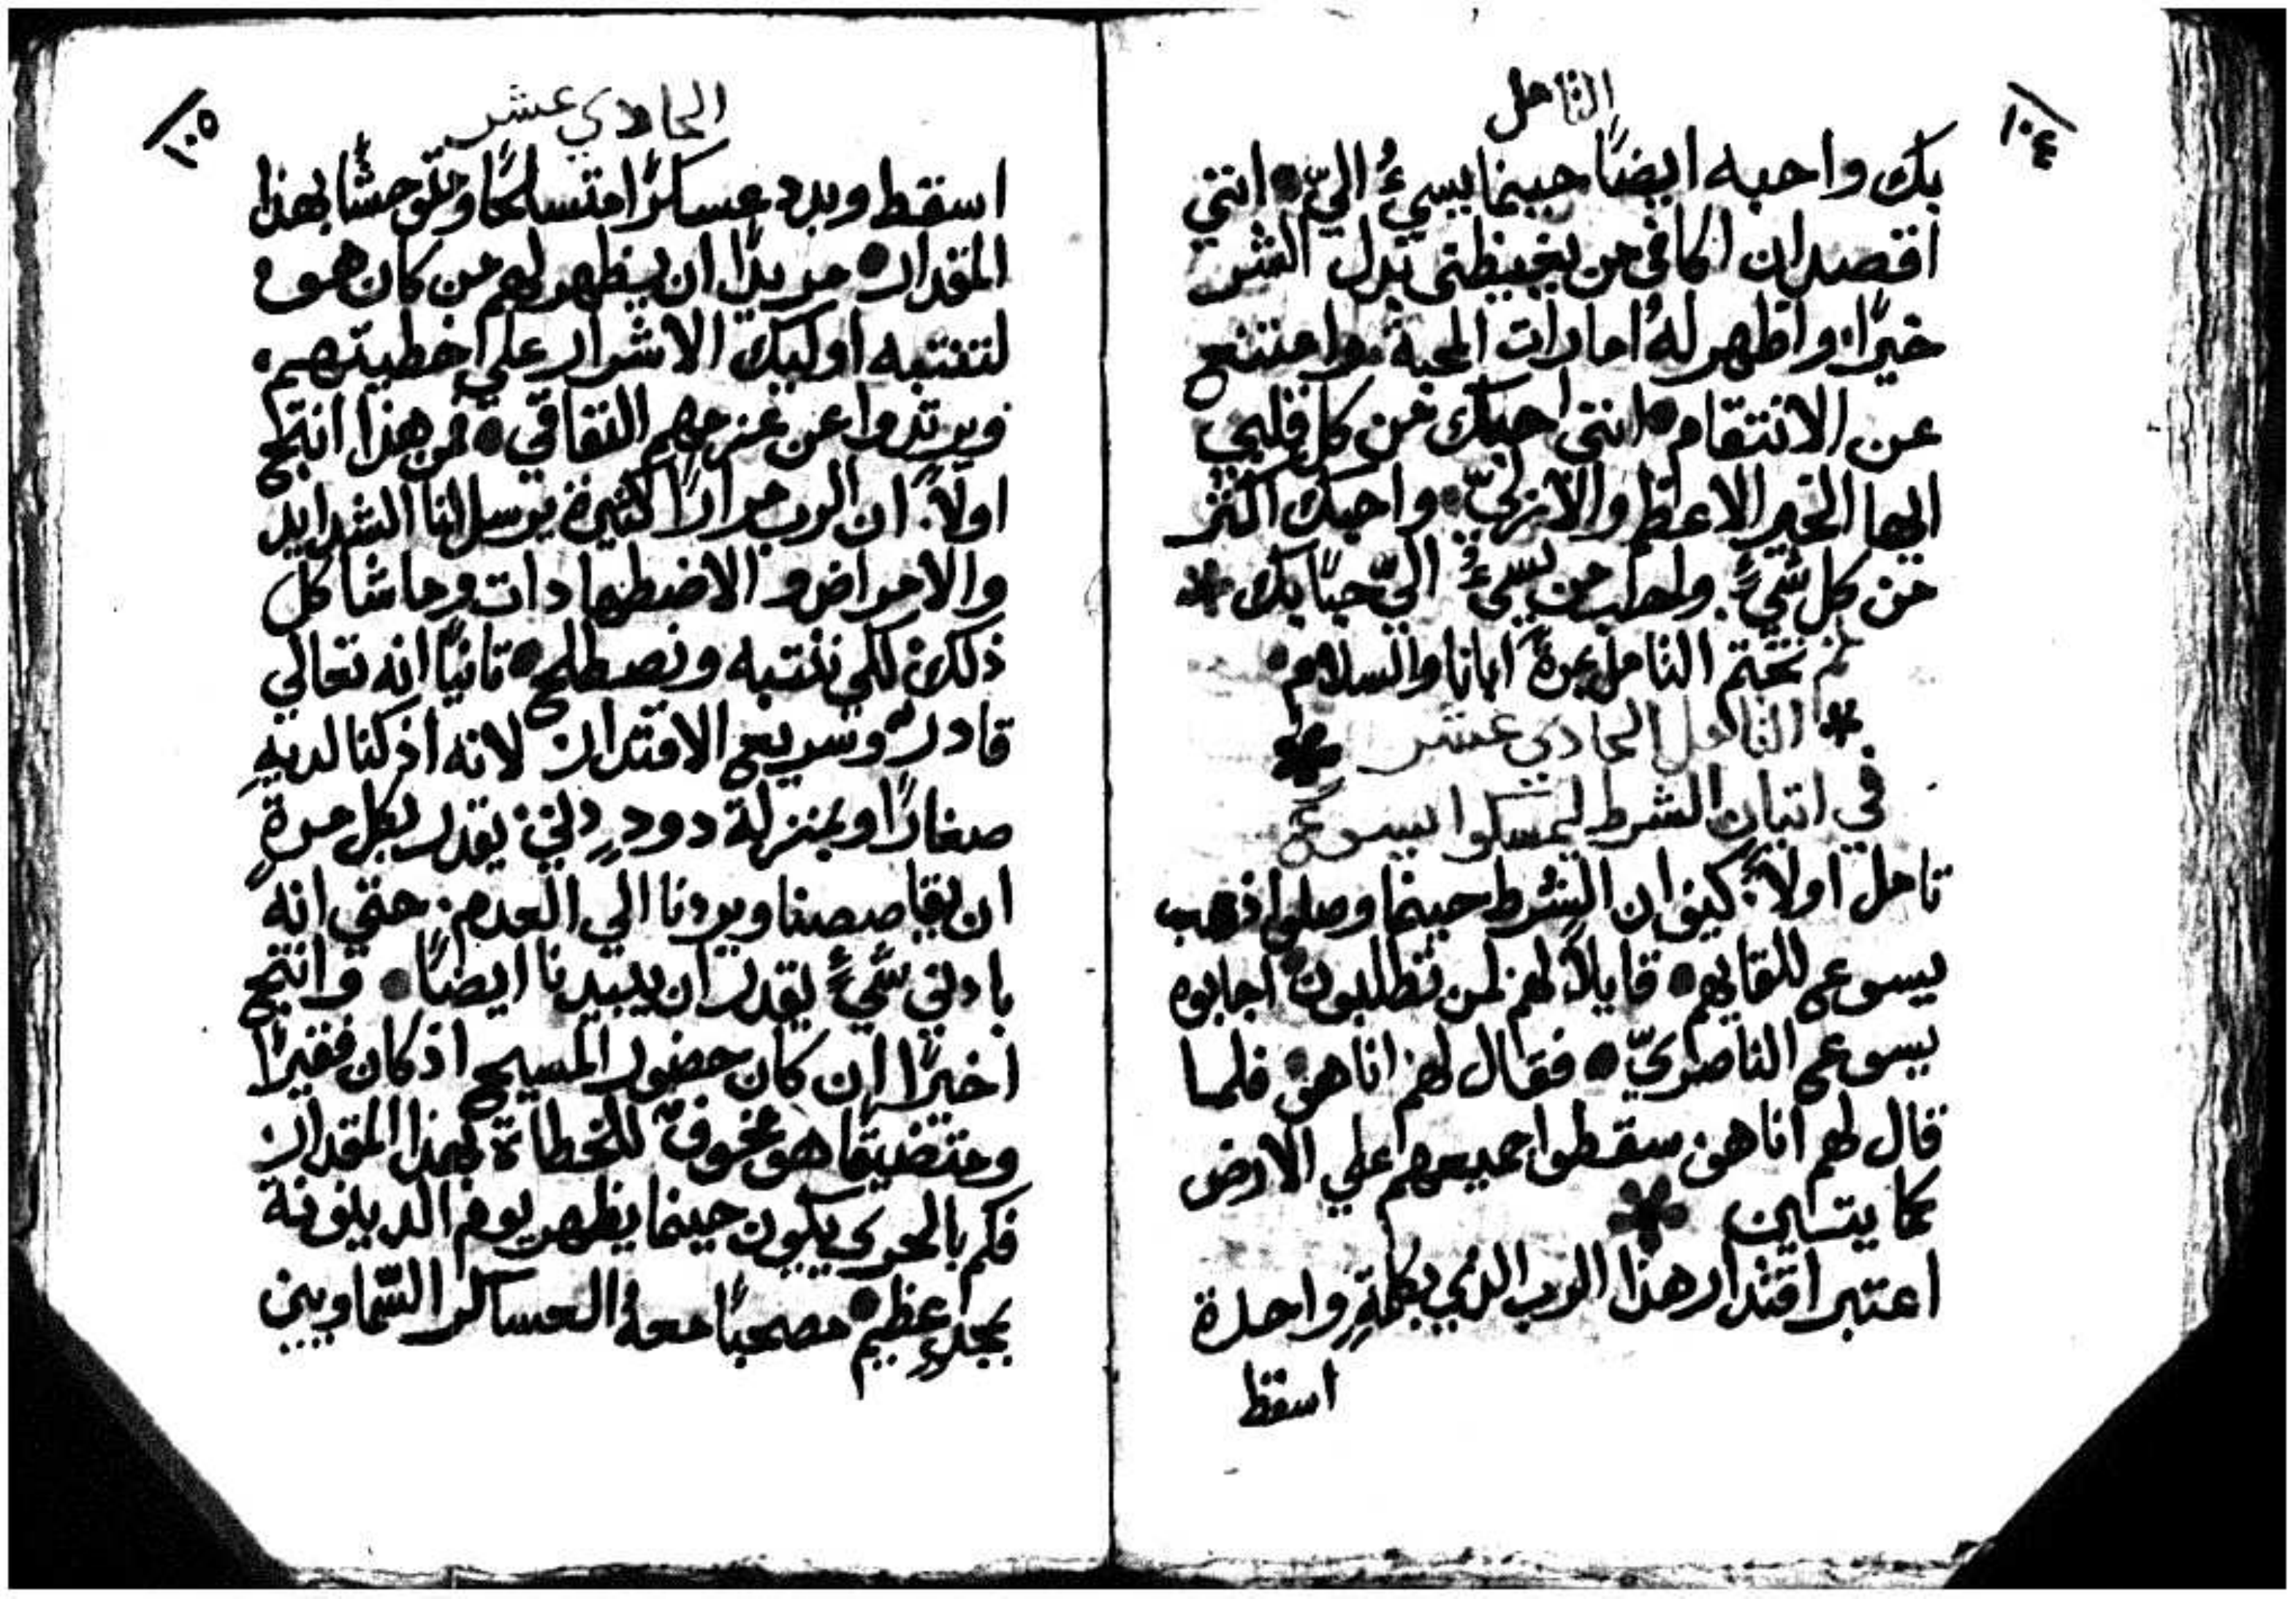 ١٠٤
التامل
بك واحبه ايضًا حينما يسيءُ اليّ انني
اقصد ان اكافي من يغيظني بدل الشر
خيرًا. واظهر لهُ امارات المحبة. وامتنع
عن الانتقام انني احبك من كل قلبي
ايها الخير الاعظم والازليّ. واحبك اكثر
من كل شيءٍ. واحب من يسيءُ اليّ حبًا بك *
ثم تختم التامل بمرة ابانا والسلام.
* التامل الحادي عشر *
في اتيان الشرط ليمسكوا يسوع
تامل اولاً: كيف ان الشرط حينما وصلوا ذهب
يسوع للقايهم قايلاً لهم لمن تطلبون اجابوه
يسوع الناصريّ فقال لهم انا هو. فلما
قال لهم انا هو. سقطوا جميعهم علي الارض
كما يتساين *
اعتبر اقتدار هذا الرب الذي بكلمةٍ واحدة
اسقط
١٠٥
الحادي عشر
اسقط وبدد عسكرًا متسلحًا ومتوحشًا بهذا
المقدار مريدًا ان يظهر لهم من كان هو
لتنتبه اوليك الاشرار علي خطيتهم.
ويرتدوا عن عزمهم النفاقي فمن هذا انتج
اولاً. ان الرب مرارًا كثيرة يرسل لنا الشدايد
والامراض والاضطهادات وما شاكل
ذلك. لكي ننتبه ونصطلح ثانيًا انه تعالي
قادرٌ وسريع الاقتدار. لانه اذ كنا لديهِ
صغارًا وبمنزلة دودٍ دني. يقدر بكل مرةٍ
ان يقاصصنا ويردنا الي العدم. حتي انه
بادني شيءٍ يقدر ان يبيدنا ايضًا وانتج
اخيرًا ان كان حضور المسيح اذ كان فقيرًا
ومتضيقا هو مخوفٌ للخطاة بهذا المقدار.
فكم بالحري يكون حينما يظهر يوم الدينونة
بمجدٍ عظيم مصحبًا معهُ العساكر السّماويين